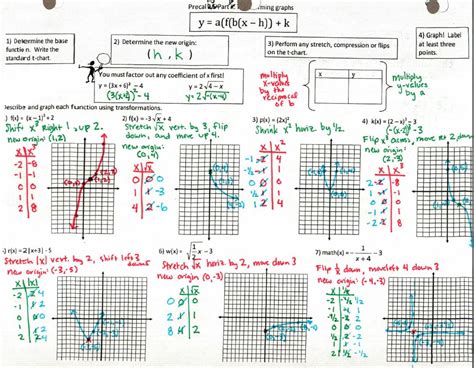 Precal Part rming graphs
y = a(f(b(x – h)) + k
1) Determine the base function. Write the standard t-chart.
2) Determine the new origin:
(h, k)
3) Perform any stretch, compression or flips on the t-chart.
4) Graph! Label at least three points.
You must factor out any coefficient of x first!
y = (3x + 6)² – 4
y = 2√4 – x
(3(x+2))² – 4
multiply x-values by the reciprocal of b
x y
multiply y-values by a
Describe and graph each function using transformations.
1) f(x) = (x – 1)³ + 2
Shift x³ Right 1, up 2.
new origin (1,2)
x x³
-2 -8
-1 -1
0 0
1 1
2 8
(0,1)
(1,2)
(2,3)
2) f(x) = -3√x + 4
Stretch √x vert. by 3, flip down, and move up 4.
new origin: (0,4)
x √x
0 0
1 -3
4 -6
(0,4)
(4,-2)
3) p(x) = (2x)²
Shrink x² horiz by 1/2
x x²
4
1
0
1
4
4) k(x) = (2 – x)³ – 3
(-(x-2))³ – 3
Flip x³ across, move rt 2, down
new origin: (2,-3)
x x³
-8
-1
0 0
1
8
5) r(x) = 2|x+3| - 5
Stretch |x| vert. by 2, shift left 3 down 5
new origin: (-3,-5)
x |x|
-2 4
-1 2
0 0
1 2
2 4
(-3,-5)
6) w(x) = √½x – 3
Stretch √x horiz by 2, move down 3
new origin (0,-3)
x √x
0 0
2 1
8 2
(0,-3)
7) math(x) = -1/(x + 4) – 3
Flip ½ down, move left 4 down 3
new origin: (-4,-3)
x 1/x